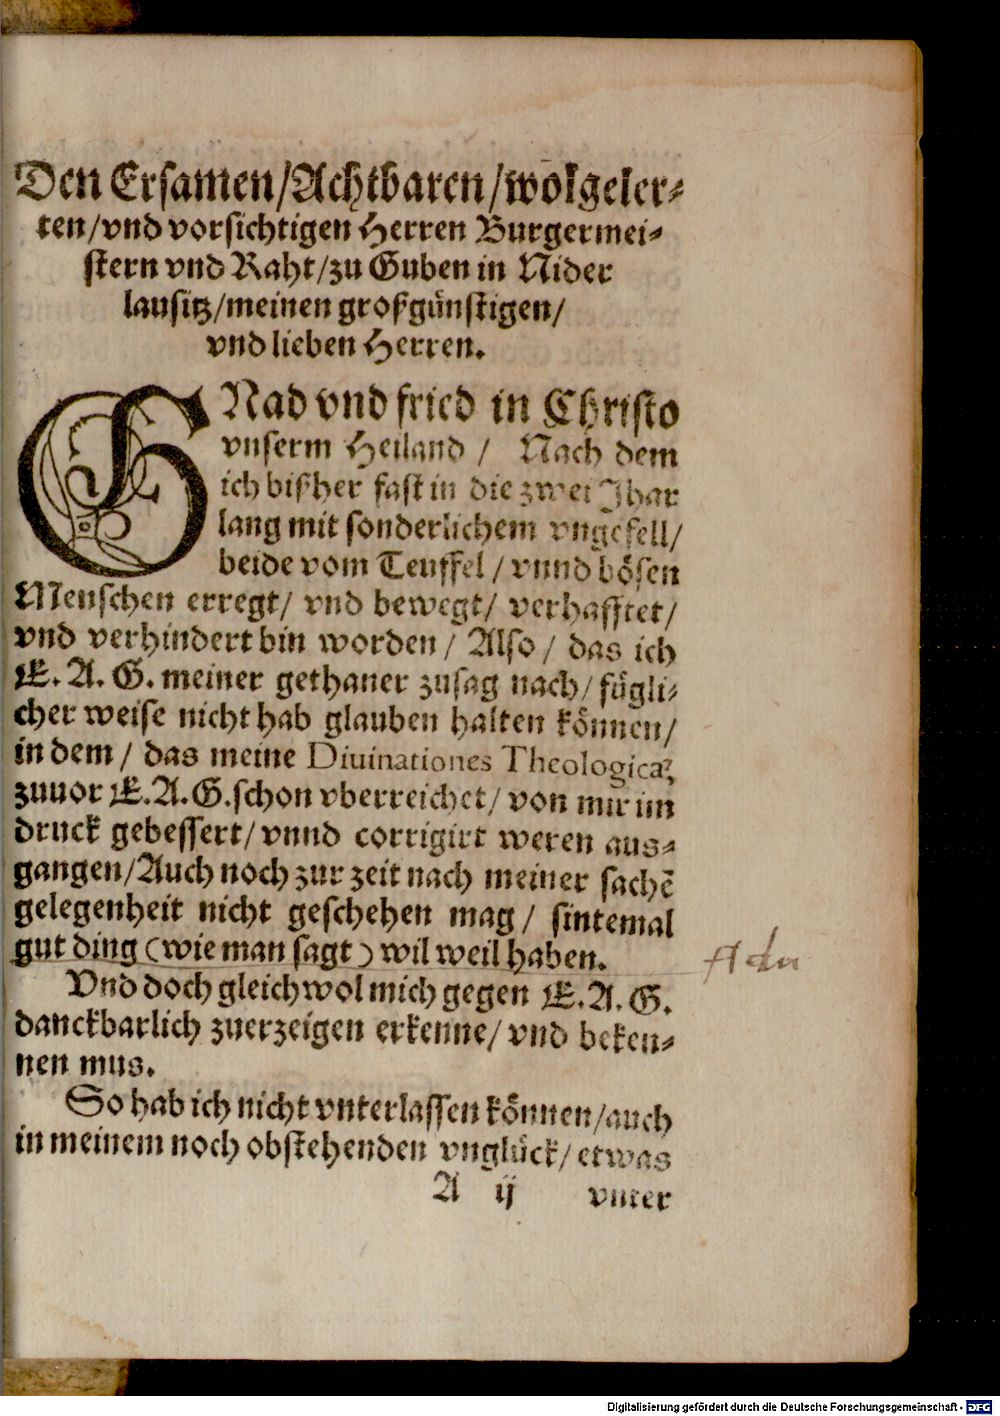 Den Ersamen/Achtbaren/wolgeler⸗
ten/vnd vorsichtigen Herren Burgermei⸗
stern vnd Raht/zu Guben in Nider
lausitz/meinen großgünstigen/
vnd lieben Herren.
GNad vnd fried in Christo
vnserm Heiland / Nach dem
ich bißher fast in die zwei Jhar
lang mit sonderlichem vngefell/
beide vom Teuffel / vnnd bösen
Menschen erregt/ vnd bewegt/ verhafftet/
vnd verhindert bin worden/ Also/ das ich
E. A. G. meiner gethaner zusag nach/ fügli⸗
cher weise nicht hab glauben halten können/
in dem/ das meine Diuinationes Theologicæ
zuuor E.A.G.schon vberreichet/ von mir im
druck gebessert/ vnnd corrigirt weren aus⸗
gangen/Auch noch zur zeit nach meiner sachē
gelegenheit nicht geschehen mag/ sintemal
gut ding (wie man sagt) wil weil haben.
Vnd doch gleichwol mich gegen E.A.G.
danckbarlich zuerzeigen erkenne/ vnd beken⸗
nen mus.
So hab ich nicht vnterlassen können/auch
in meinem noch obstehenden vnglück/ etwas
A ij vnter
Digitalisierung gefördert durch die Deutsche Forschungsgemeinschaft - DFG